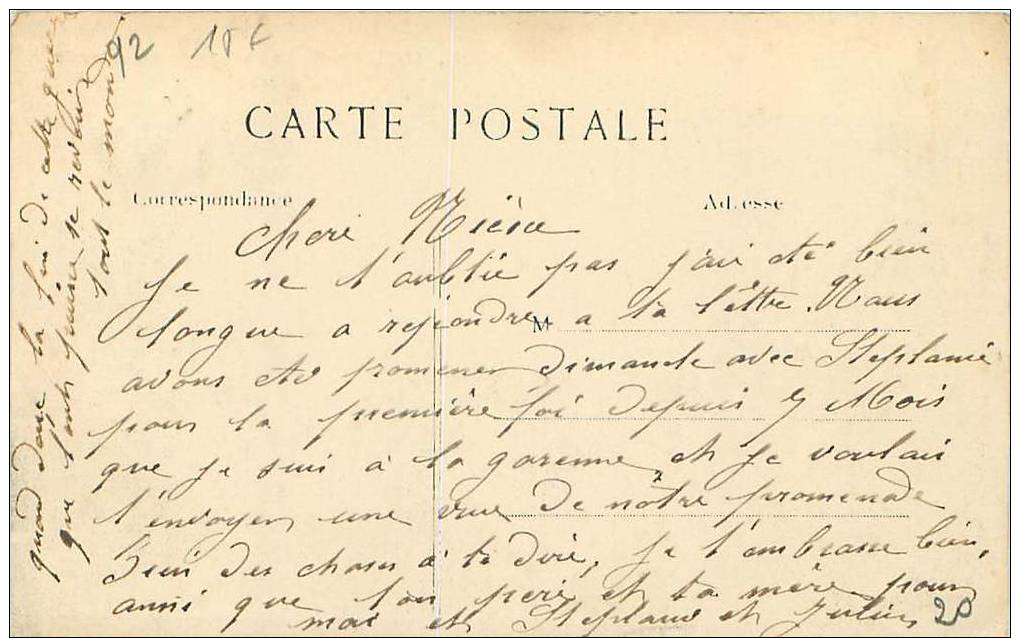 92 18 €
CARTE POSTALE
Correspondance Adresse
chere Nièce
Je ne t'oublie pas j'ai été bien
longue a rejondre a ta lettre. Nous
M
avons été promener dimanche avec Stéphanie
pour la première foi depuis 7 Mois
que je suis à la garenne, et je voulai
t'envoyer une vue de nôtre promenade
bien des choses à te dire, je t'embrasse bien,
aussi que ton père et ta mère pour
moi et Stephanie et Julien
20
quand donc la fin de cette guerre
que l'ont puisse se revoir
tout le monde